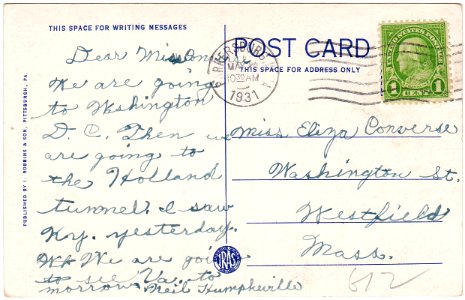 THIS SPACE FOR WRITING MESSAGES
Dear Miss
We are going
to Washington
D. C. Then we
are going to
the Holland
tunnel. I saw
Ky. yesterday.
We are going
to see Va. to
morrow. Neil Humpheville
PUBLISHED BY I. ROBBINS & SON, PITTSBURGH, PA.
POST CARD
THIS SPACE FOR ADDRESS ONLY
PARKERSBURG
MAY
10:30 AM
1931
UNITED STATES POSTAGE
1 CENT 1
Miss Eliza Converse
Washington St.
Westfield
Mass.
IRAS
612